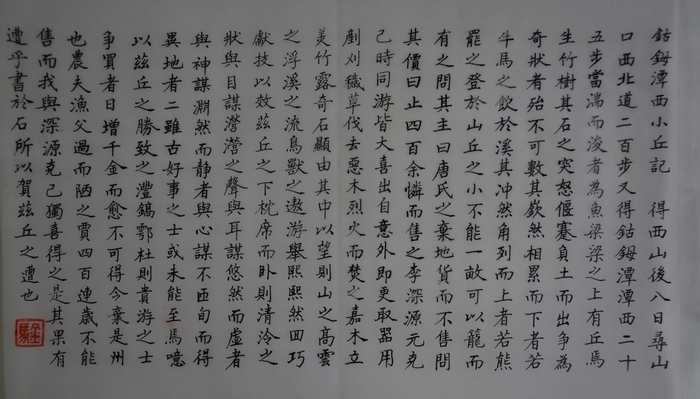 鈷鉧潭西小丘記　得西山後八日尋山
口西北道二百步又得鈷鉧潭潭西二十
五步當湍而浚者為魚梁梁之上有丘焉
生竹樹其石之突怒偃蹇負土而出爭為
奇狀者殆不可數其嶔然相累而下者若
牛馬之飲於溪其冲然角列而上者若熊
羆之登於山丘之小不能一畝可以籠而
有之問其主曰唐氏之棄地貨而不售問
其價曰止四百余憐而售之李深源元克
己時同游皆大喜出自意外即更取器用
剷刈穢草伐去惡木烈火而焚之嘉木立
美竹露奇石顯由其中以望則山之高雲
之浮溪之流鳥獸之遨游舉熙熙然回巧
獻技以效茲丘之下枕席而臥則清泠之
狀與目謀瀯瀯之聲與耳謀悠然而虛者
與神謀淵然而静者與心謀不匝旬而得
異地者二雖古好事之士或未能至焉噫
以茲丘之勝致之灃鎬鄠杜則貴游之士
爭買者日增千金而愈不可得今棄是州
也農夫漁父過而陋之賈四百連歲不能
售而我與深源克己獨喜得之是其果有
遭乎書於石所以賀茲丘之遭也